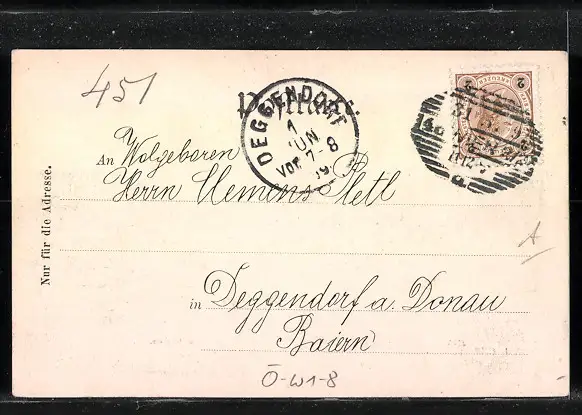 451
DEGGENDORF
1
JUN
VOR. 7-8
KREUZER
2
2
An Wolgeboren
Herrn Clemens Pletl
Nur für die Adresse.
A
in Deggendorf a. Donau
Baiern
Ö-W1-8